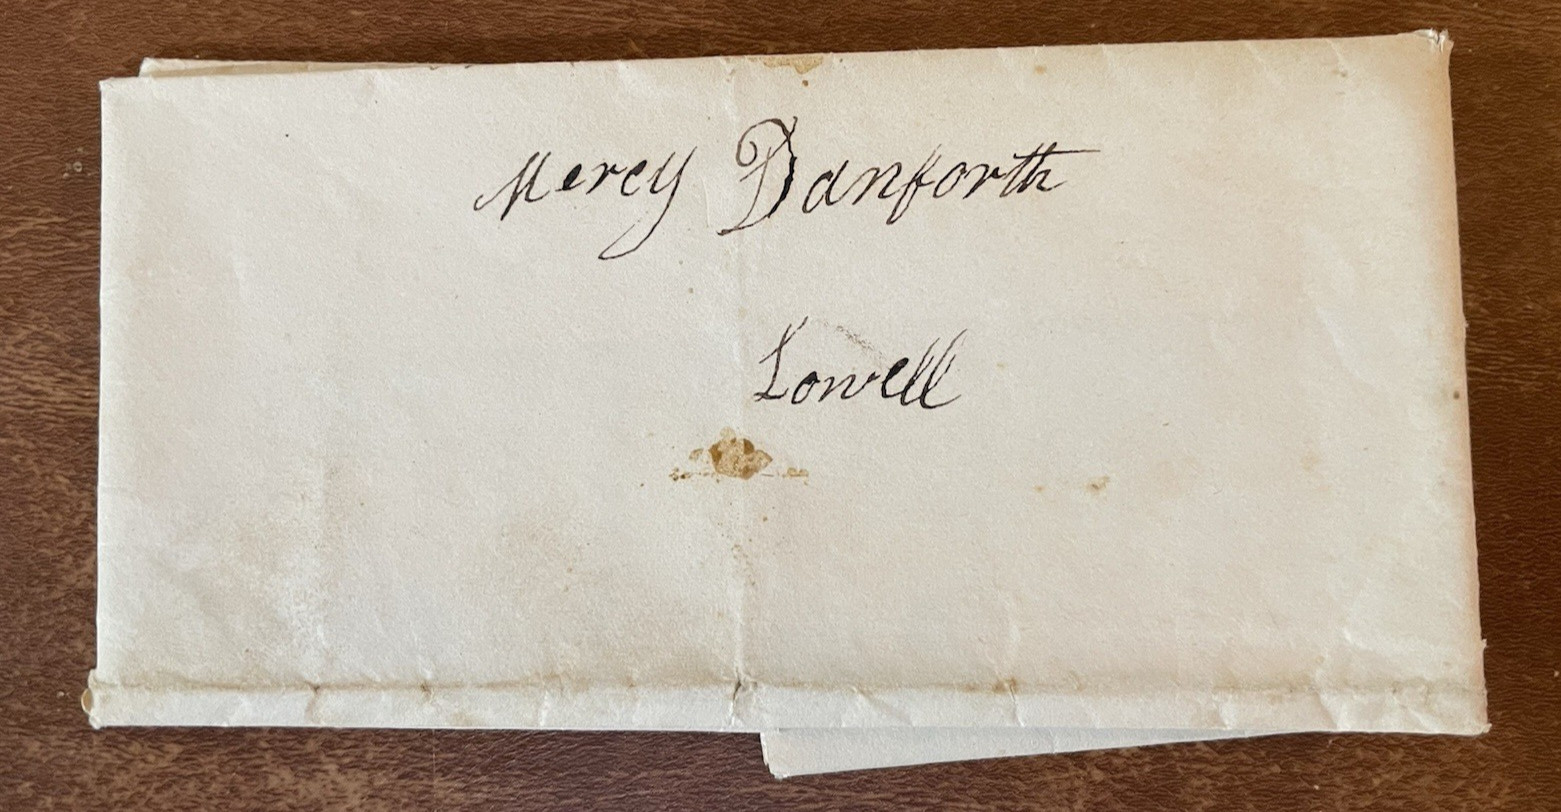 Mercy Danforth
Lowell